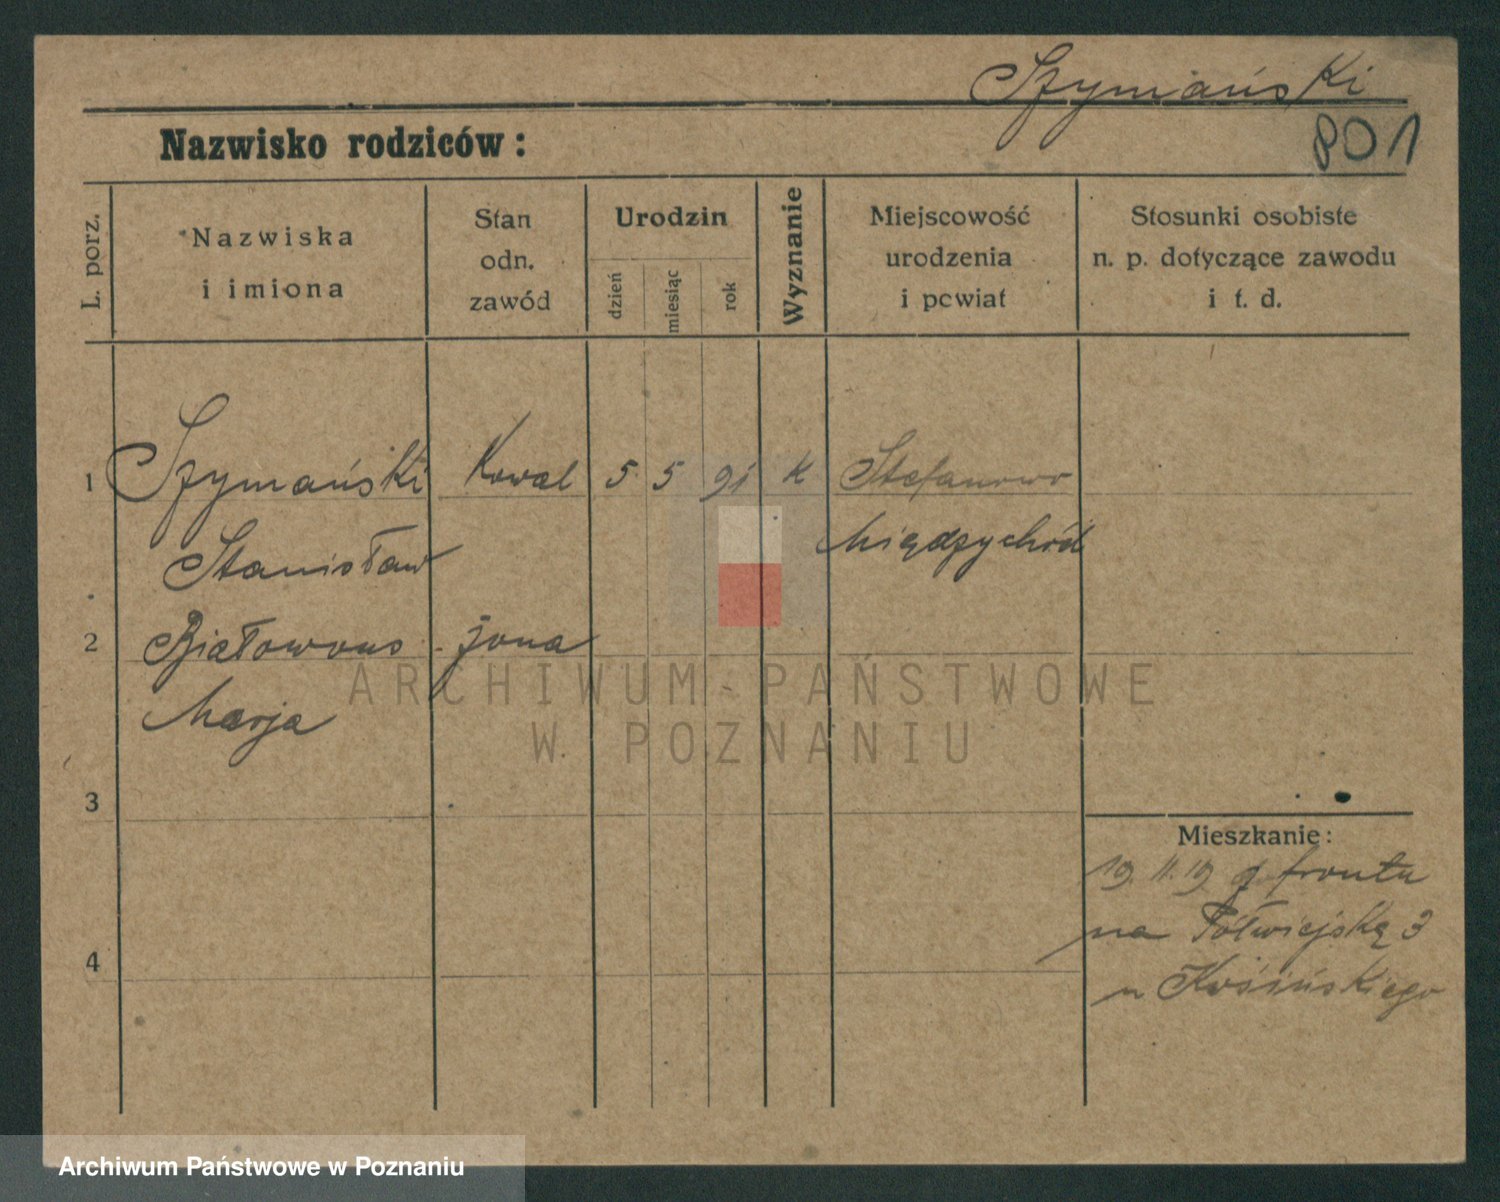 Szymański
801
Nazwisko rodziców:
L. porz.
Nazwiska
i imiona
Stan
odn.
zawód
Urodzin
dzień
miesiąc
rok
Wyznanie
Miejscowość
urodzenia
i powiat
Stosunki osobiste
n. p. dotyczące zawodu
i t. d.
1 Szymański Kowal 5 5 91 K Stefanowo
Stanisław Międzychód
2 Białowons żona
Marja
3
4
Mieszkanie:
19. 11. 19 z frontu
na Półwiejską 3
u Kośińskiego
ARCHIWUM PAŃSTWOWE
W POZNANIU
Archiwum Państwowe w Poznaniu